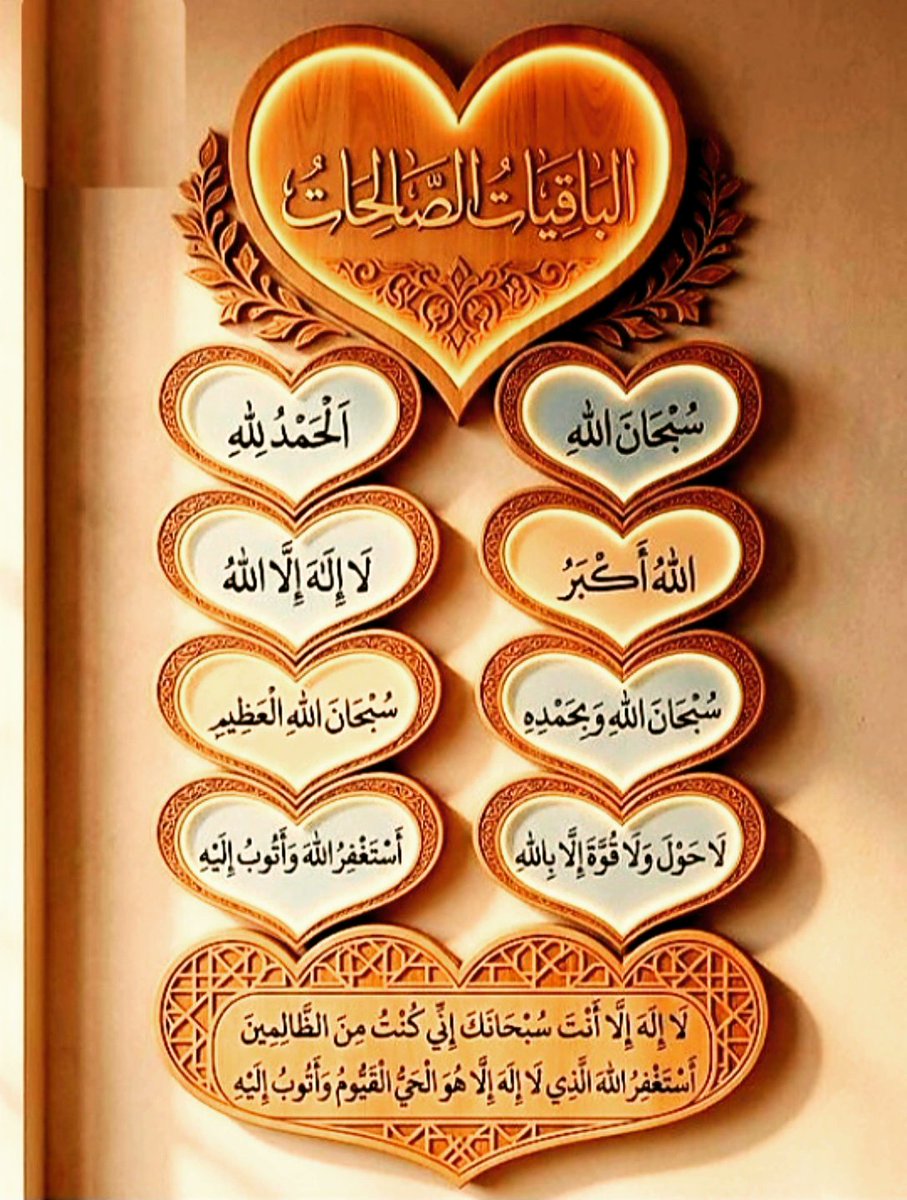 الْبَاقِيَاتُ الصَّالِحَاتُ
سُبْحَانَ اللهِ
اَلْحَمْدُ لِلهِ
اللهُ أَكْبَرُ
لَا إِلَٰهَ إِلَّا اللهُ
سُبْحَانَ اللهِ وَبِحَمْدِهِ
سُبْحَانَ اللهِ الْعَظِيمِ
لَا حَوْلَ وَلَا قُوَّةَ إِلَّا بِاللهِ
أَسْتَغْفِرُ اللهَ وَأَتُوبُ إِلَيْهِ
لَا إِلَهَ إِلَّا أَنْتَ سُبْحَانَكَ إِنِّي كُنْتُ مِنَ الظَّالِمِينَ
أَسْتَغْفِرُ اللهَ الَّذِي لَا إِلَهَ إِلَّا هُوَ الْحَيُّ الْقَيُّومُ وَأَتُوبُ إِلَيْهِ